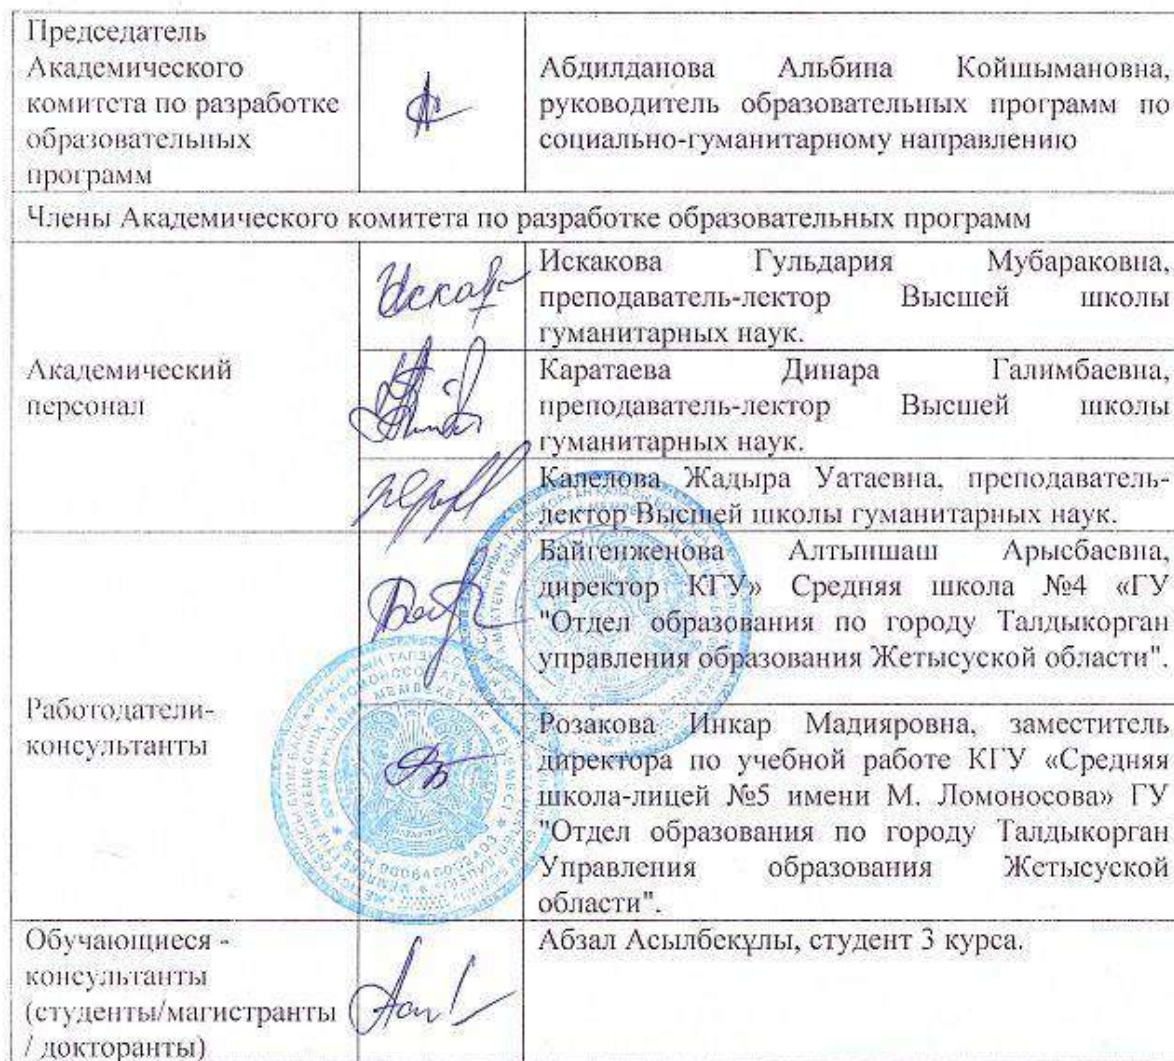 Председатель
Академического
комитета по разработке
образовательных
программ
Абдилданова Альбина Койшымановна,
руководитель образовательных программ по
социально-гуманитарному направлению
Члены Академического комитета по разработке образовательных программ
Академический
персонал
Искакова Гульдария Мубараковна,
преподаватель-лектор Высшей школы
гуманитарных наук.
Каратаева Динара Галимбаевна,
преподаватель-лектор Высшей школы
гуманитарных наук.
Капелова Жадыра Уатаевна, преподаватель-
лектор Высшей школы гуманитарных наук.
Работодатели-
консультанты
Байгенженова Алтыншаш Арысбаевна,
директор КГУ» Средняя школа №4 «ГУ
"Отдел образования по городу Талдыкорган
управления образования Жетысуской области".
Розакова Инкар Мадияровна, заместитель
директора по учебной работе КГУ «Средняя
школа-лицей №5 имени М. Ломоносова» ГУ
"Отдел образования по городу Талдыкорган
Управления образования Жетысуской
области".
Обучающиеся -
консультанты
(студенты/магистранты
/ докторанты)
Абзал Асылбекұлы, студент 3 курса.